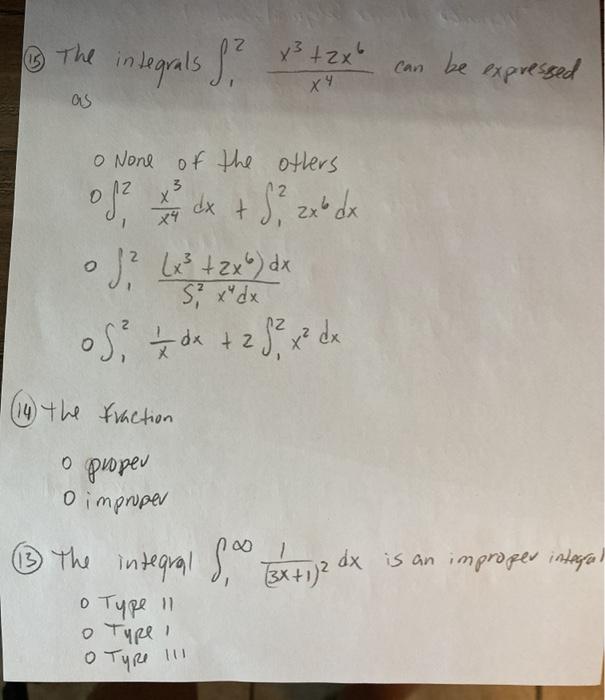 (15) The integrals ∫₁² (x³ + 2x⁶)/x⁴ can be expressed
as
o None of the others
o ∫₁² x³/x⁴ dx + ∫₁² 2x⁶ dx
o ∫₁² (x³ + 2x⁶) dx / ∫₁² x⁴ dx
o ∫₁² 1/x dx + 2 ∫₁² x² dx
(14) the fraction
o proper
o improper
(13) The integral ∫₁^∞ 1/(3x+1)² dx is an improper integral
o Type II
o Type I
o Type III